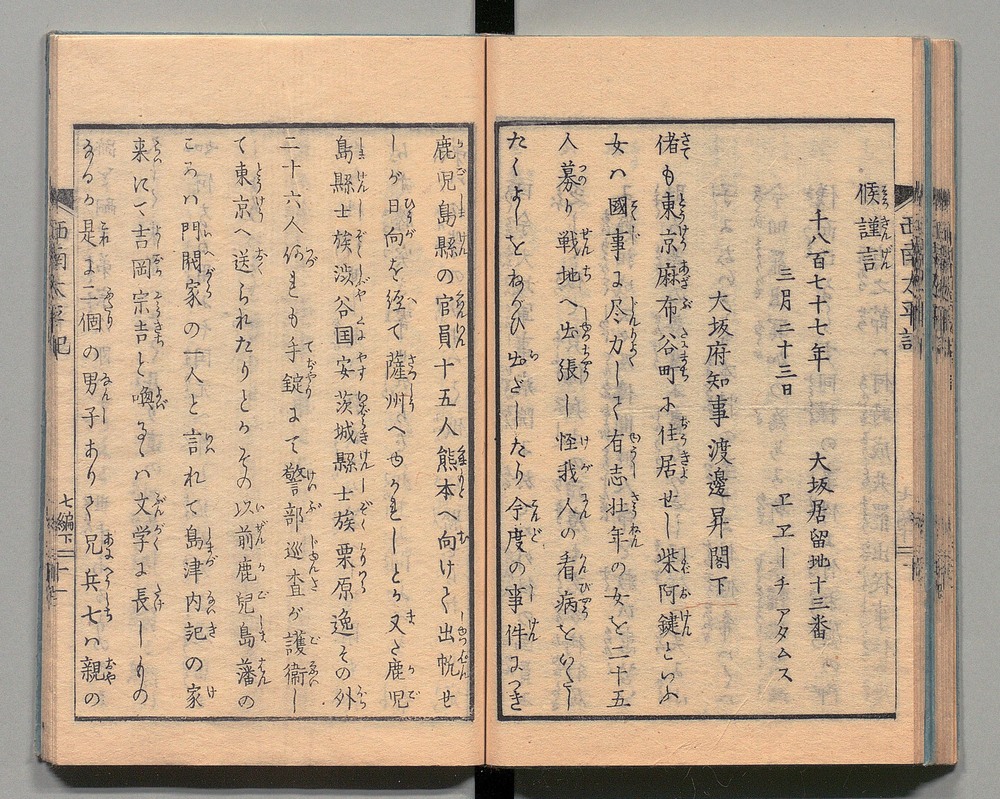 候謹言
千八百七十七年　大坂居留地十三番
三月二十三日　ヱヱーチ アタムス
大坂府知事渡邊昇閣下
偖も東京麻布谷町に住居せし柴阿鍵といふ
女ハ國事に尽力して有志壮年の女を二十五
人募り戦地へ出張し怪我人の看病をいたし
たくよしをねがひ出でしたり今度の事件につき
鹿児島縣の官員十五人熊本へ向けて出帆せ
しが日向を経て薩州へ
島縣士族渋谷国安茨城縣士族栗原逸その外
二十六人何れも手錠にて警部巡査が護衛し
て東京へ送られたりとかその以前鹿兒島藩の
ころハ門閥家の一人と言れて島津内記の家
来にて吉岡宗吉と喚るハ文学に長しもの
なるが是に二個の男子ありて兄兵七ハ親の
西南太平記
七編下
十一